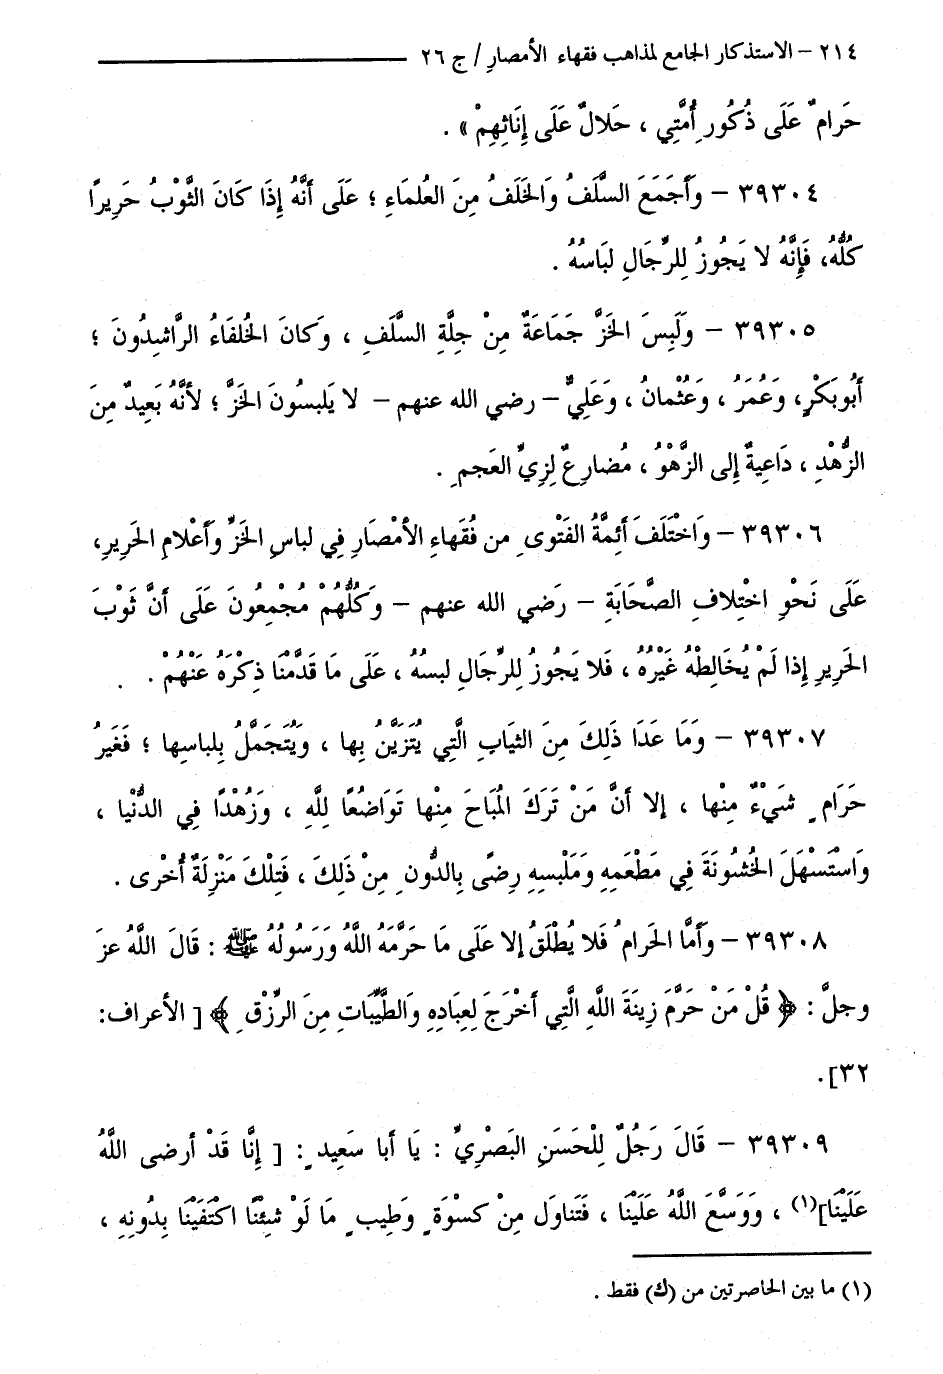 ٢١٤ – الاستذكار الجامع لمذاهب فقهاء الأمصار / ج ٢٦
حَرام ٌ عَلَى ذُكُورِ أُمَّتِي ، حَلالٌ عَلَى إِنَاثِهِمْ » .
٣٩٣٠٤ – وَأَجَمَعَ السَّلَفُ وَالخَلَفُ مِنَ العُلمَاءِ ؛ عَلَى أَنَّهُ إِذَا كَانَ الثَّوْبُ حَرِيراً
كُلُّهُ، فَإِنَّهُ لا يَجُوزُ لِلرِّجَالِ لبَاسُهُ .
٣٩٣٠٥ – وَلَبِسَ الخَزَّ جَمَاعَةٌ مِنْ جِلَّةِ السَّلَفِ ، وَكانَ الخُلفَاءُ الرَّاشِدُونَ ؛
أَبُوبَكْرٍ، وَعُمَرُ ، وَعُثْمانُ ، وَعَلِيٌّ – رضي الله عنهم – لا يَلبسُونَ الخَزَّ ؛ لأنَّهُ بَعِيدٌ مِنَ
الزُّهْدِ ، دَاعِيةٌ إِلى الزَّهْوُ ، مُضارِعٌ لِزِيِّ العَجمِ .
٣٩٣٠٦ – وَاخْتَلَفَ أَئِمَّةُ الفَتْوى ِمن فُقَهاءِ الأَمْصَارِ فِي لباسِ الخَزِّ وَأَعْلامِ الحَرِيرِ،
عَلَى نَحْوِ اخْتِلافِ الصَّحَابَةِ – رَضي الله عنهم – وَكُلُّهُمْ مُجْمِعُونَ عَلَى أَنَّ ثَوْبَ
الحَرِيرِ إِذا لَمْ يُخَالِطْهُ غَيْرُهُ ، فَلا يَجُوزُ لِلرِّجَالِ لبسُهُ ، عَلَى مَا قَدَّمْنَا ذِكْرَهُ عَنْهُمْ .
٣٩٣٠٧ – وَمَا عَدَا ذَلِكَ مِنَ الثيَابِ الَّتِي يُتَزَيَّنُ بِها ، وَيُتَجَمَّلُ بِلباسِها ؛ فَغَيرُ
حَرَام ٍ شَيْءٌ مِنْها ، إلا أنَّ مَنْ تَرَكَ المُبَاحَ مِنْها تَوَاضُعًا لِلَّهِ ، وَزُهْدًا فِي الدُّنْيا ،
وَاسْتَسْهَلَ الخُشُونَةَ فِي مَطْعَمِهِ وَمَلْبسِهِ رِضًى بِالدُّونِ مِنْ ذَلِكَ ، فَتِلْكَ مَنْزِلَةٌ أُخْرى .
٣٩٣٠٨ – وَأَمَّا الحَرامُ فَلا يُطْلَقُ إلا عَلَى مَا حَرَّمَهُ اللَّهُ وَرَسُولُهُ ﷺ : قَالَ اللَّهُ عزَ
وجلَّ : ﴿ قُلْ مَنْ حَرَّمَ زِينَةَ اللَّهِ الَّتِي أَخْرَجَ لِعِبَادِهِ وَالطَّيِّبَاتِ مِنَ الرِّزْقِ ﴾ [ الأعراف:
٣٢].
٣٩٣٠٩ – قَالَ رَجُلٌ لِلْحَسَنِ البَصْرِيِّ : يَا أبا سَعِيد ٍ: [ إِنَّا قَدْ أرضى اللَّهُ
عَلَيْنَا](١) ، وَوَسَّعَ اللَّهُ عَلَيْنَا ، فَتَناوَل مِنْ كسْوَة ٍ وَطِيب ٍ مَا لَوْ شِئْنَا اكْتَفَيْنَا بِدُونِهِ ،
(١) ما بين الحاصرتين من (ك) فقط .